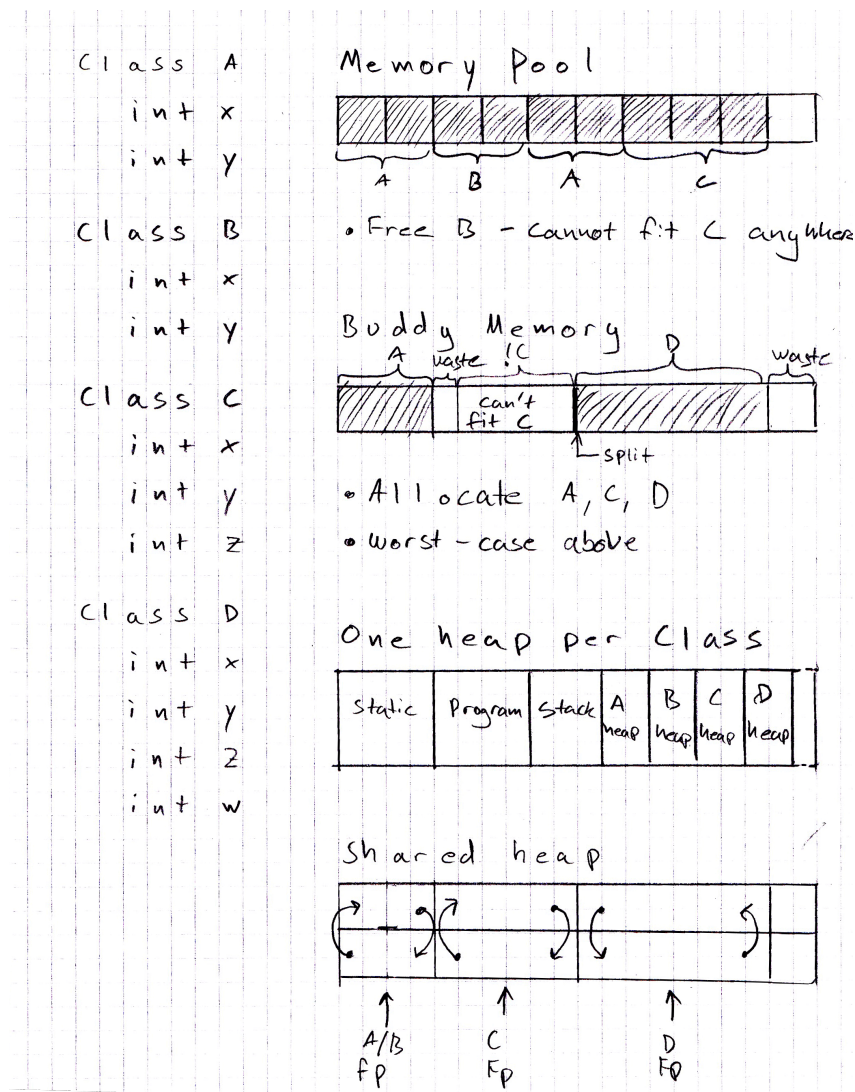 Class A
int x
int y
Class B
int x
int y
Class C
int x
int y
int z
Class D
int x
int y
int z
int w
Memory Pool
A B A C
• Free B - cannot fit C anywhere
Buddy Memory
A waste !C D waste
can't
fit C
split
• Allocate A, C, D
• Worst-case above
One heap per Class
Static Program Stack A heap B heap C heap D heap
Shared heap
A/B
fp
C
Fp
D
Fp